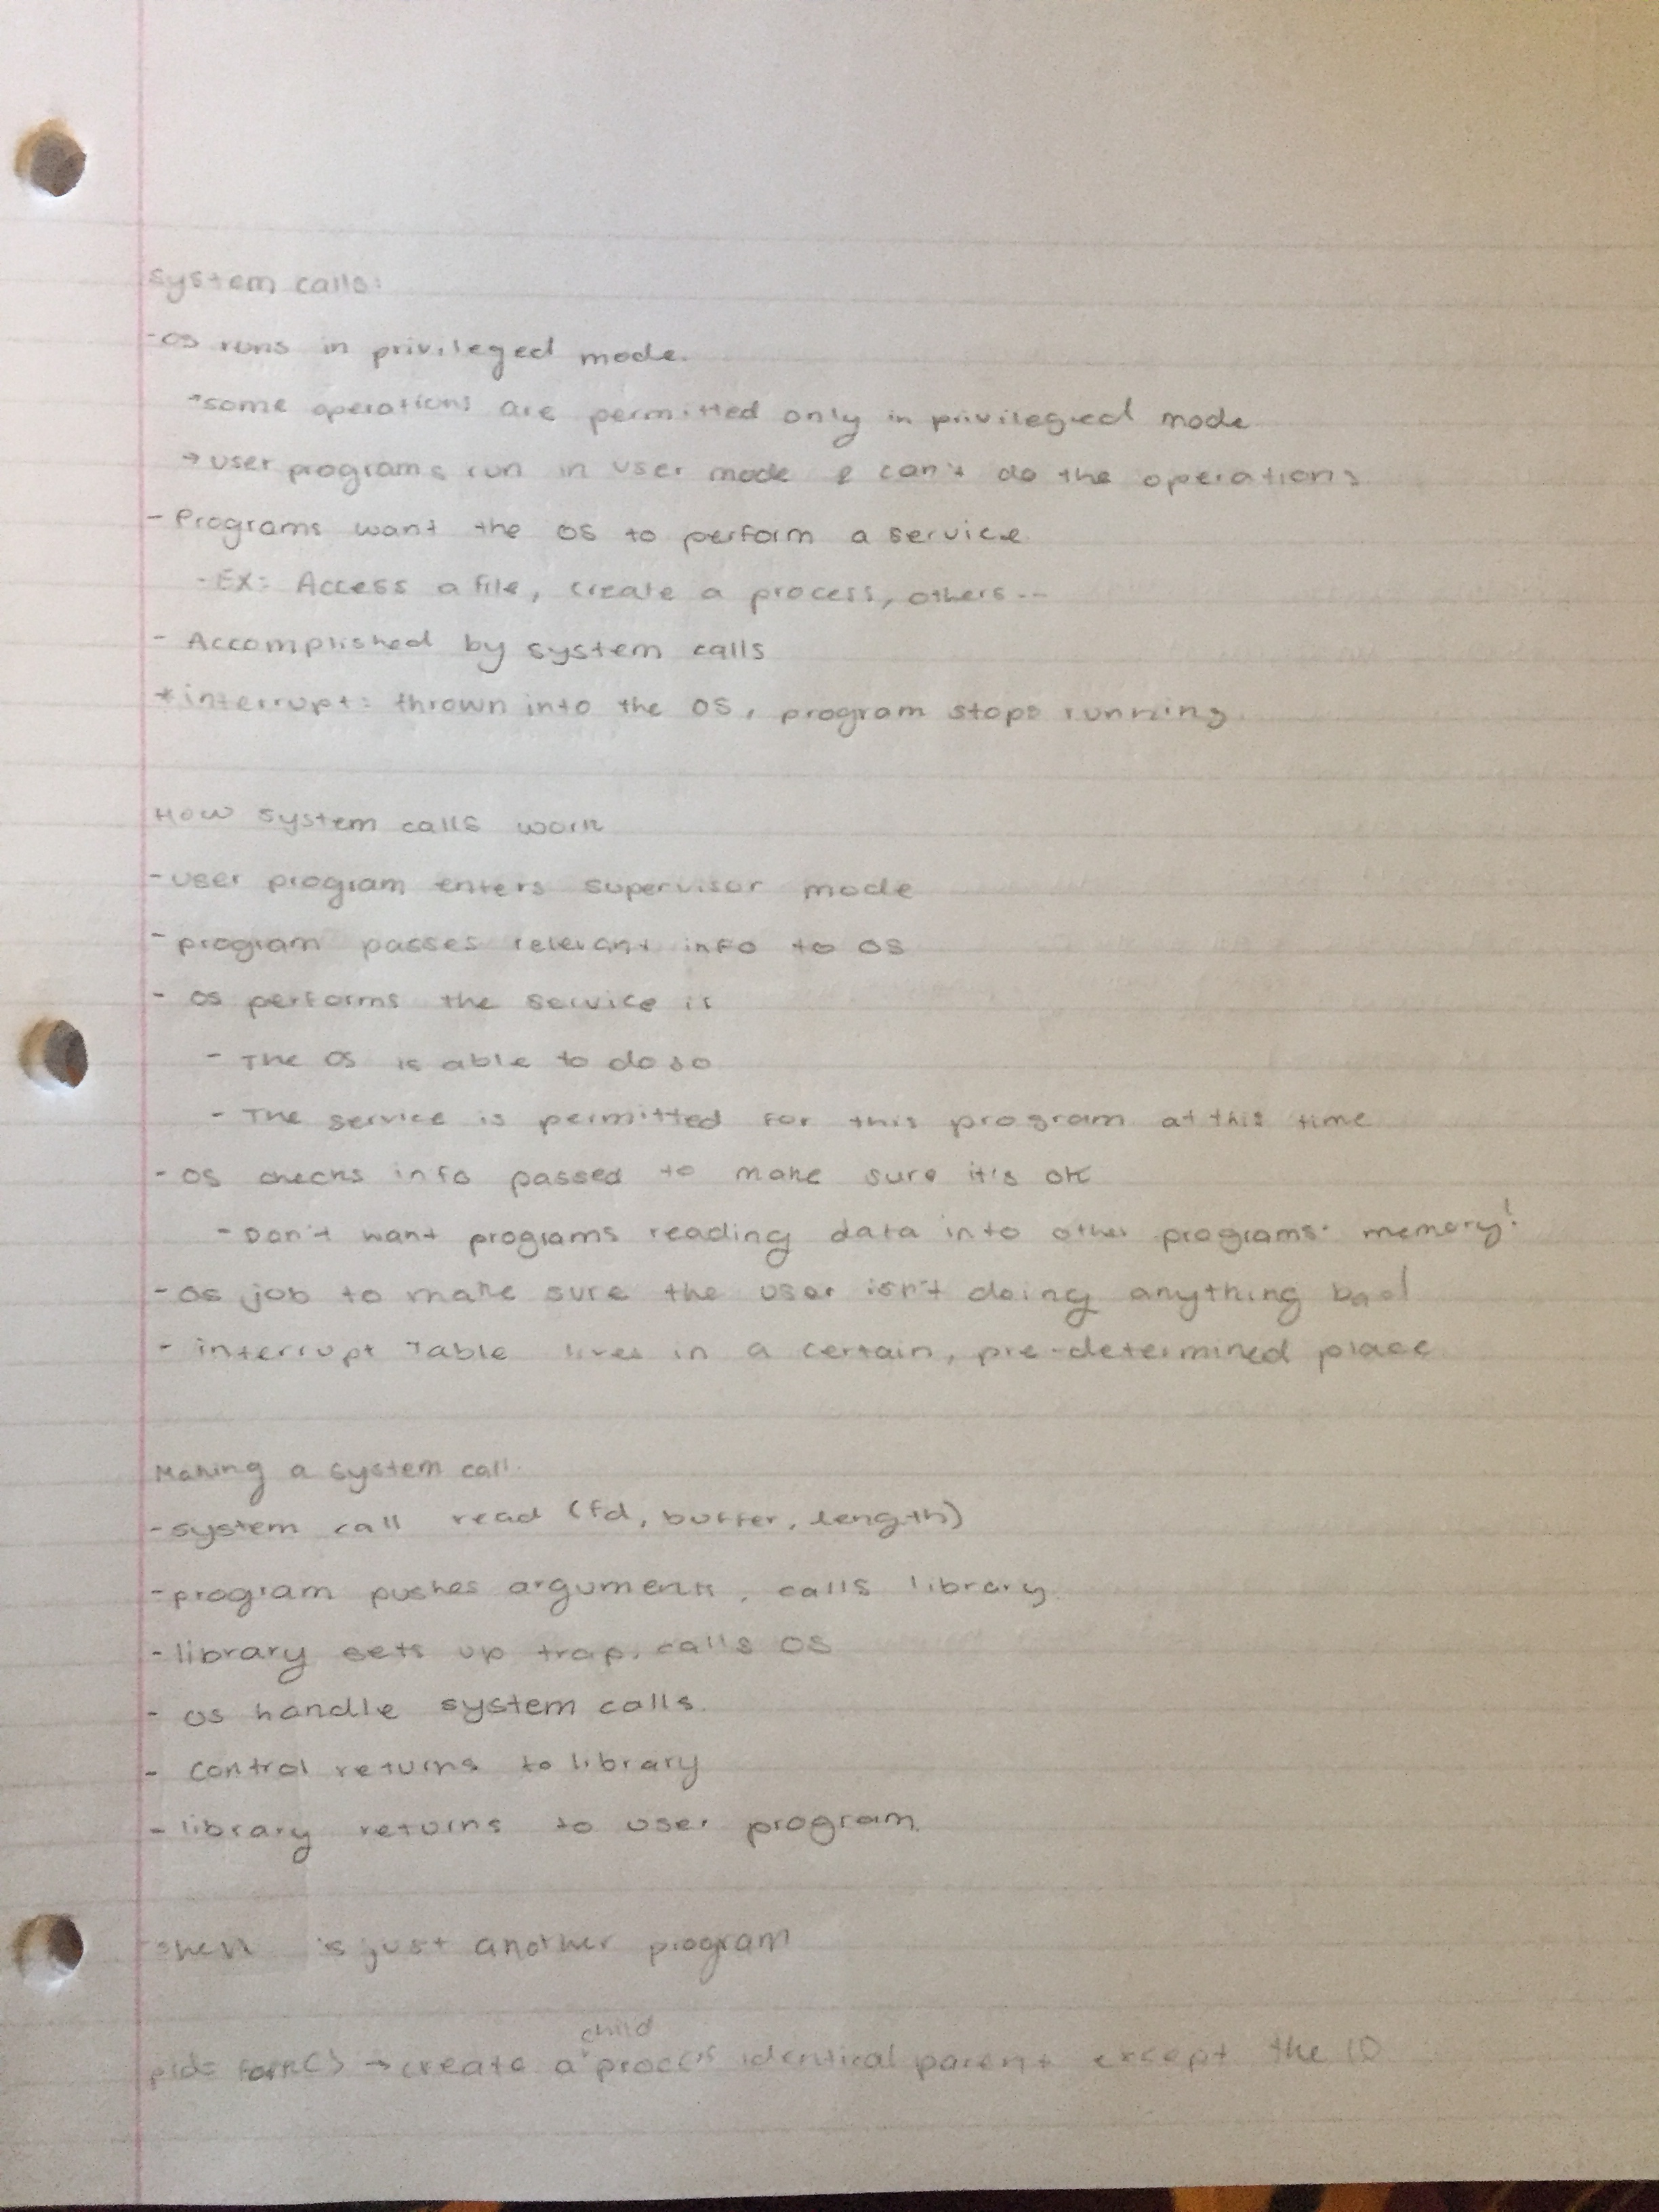 System calls:
-OS runs in privileged mode.
-some operations are permitted only in privileged mode
→user programs run in user mode & can't do the operations
- Programs want the OS to perform a service
-EX: Access a file, create a process, others...
- Accomplished by system calls
*interrupt: thrown into the OS, program stops running.
How system calls work
-user program enters supervisor mode
-program passes relevant info to OS
- OS performs the service if
- The OS is able to do so
- The service is permitted for this program at this time
- OS checks info passed to make sure it's OK
- Don't want programs reading data into other programs' memory!
- OS job to make sure the user isn't doing anything bad
- interrupt Table lives in a certain, pre-determined place
Making a system call
-system call read (fd, buffer, length)
-program pushes arguments, calls library.
-library sets up trap, calls OS
- OS handle system calls.
- Control returns to library
-library returns to user program.
shell is just another program
child
pid= fork() →create a ^ process identical parent except the ID